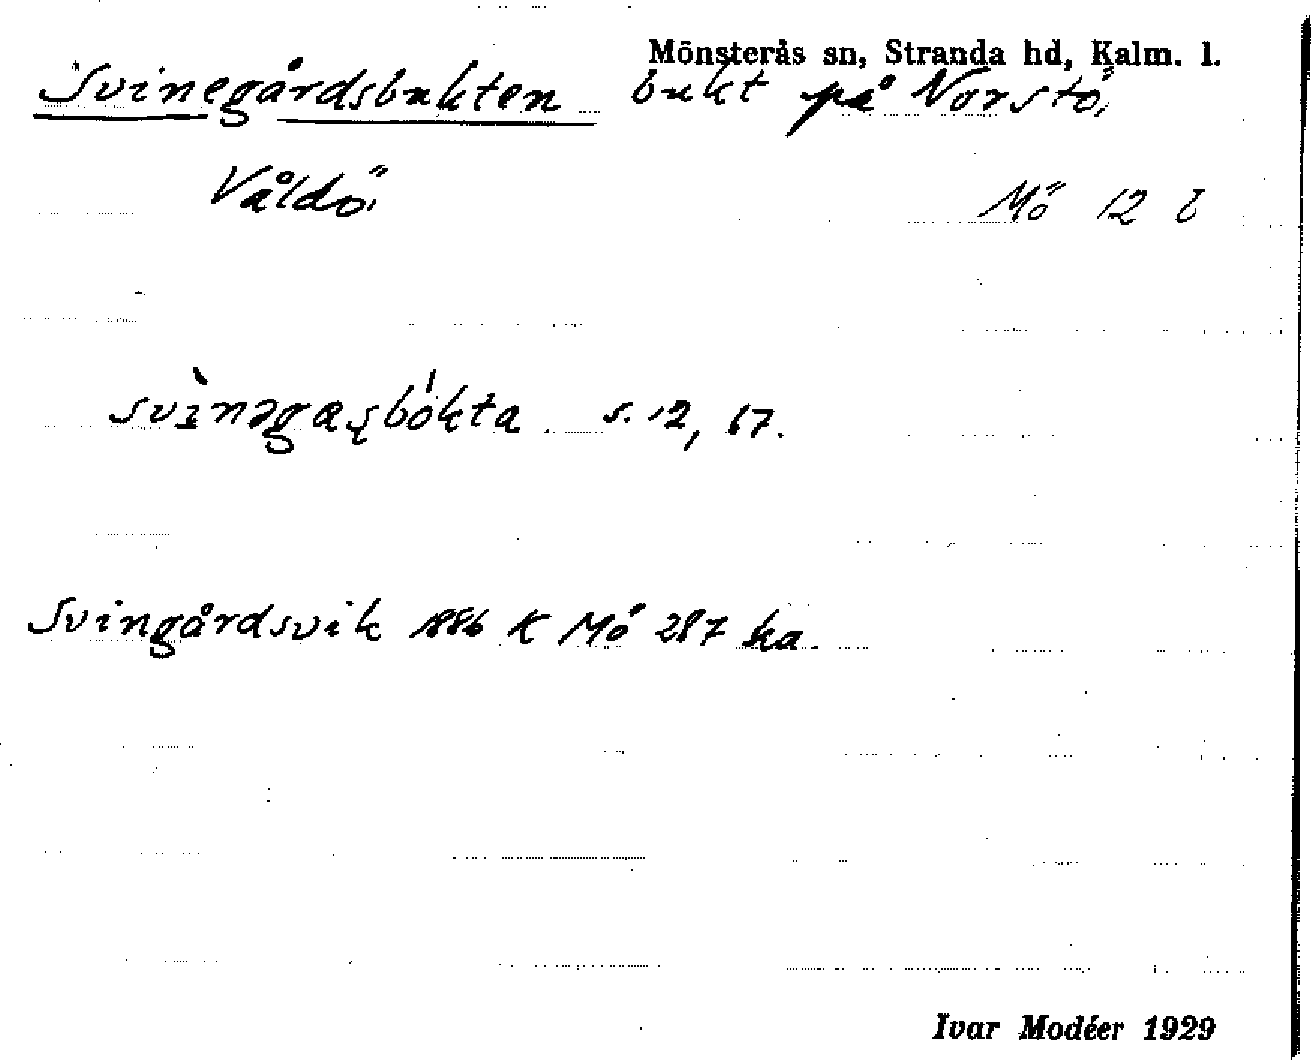 Mönsterås sn, Stranda hd, Kalm. l.
Svinegårdsbukten bukt på Norstö,
Våldö,
Mö 12 b
svìnəgaʂbókta s. 12, 67.
Svingårdsvik 1886 K Mö 287 ka.
Ivar Modéer 1929